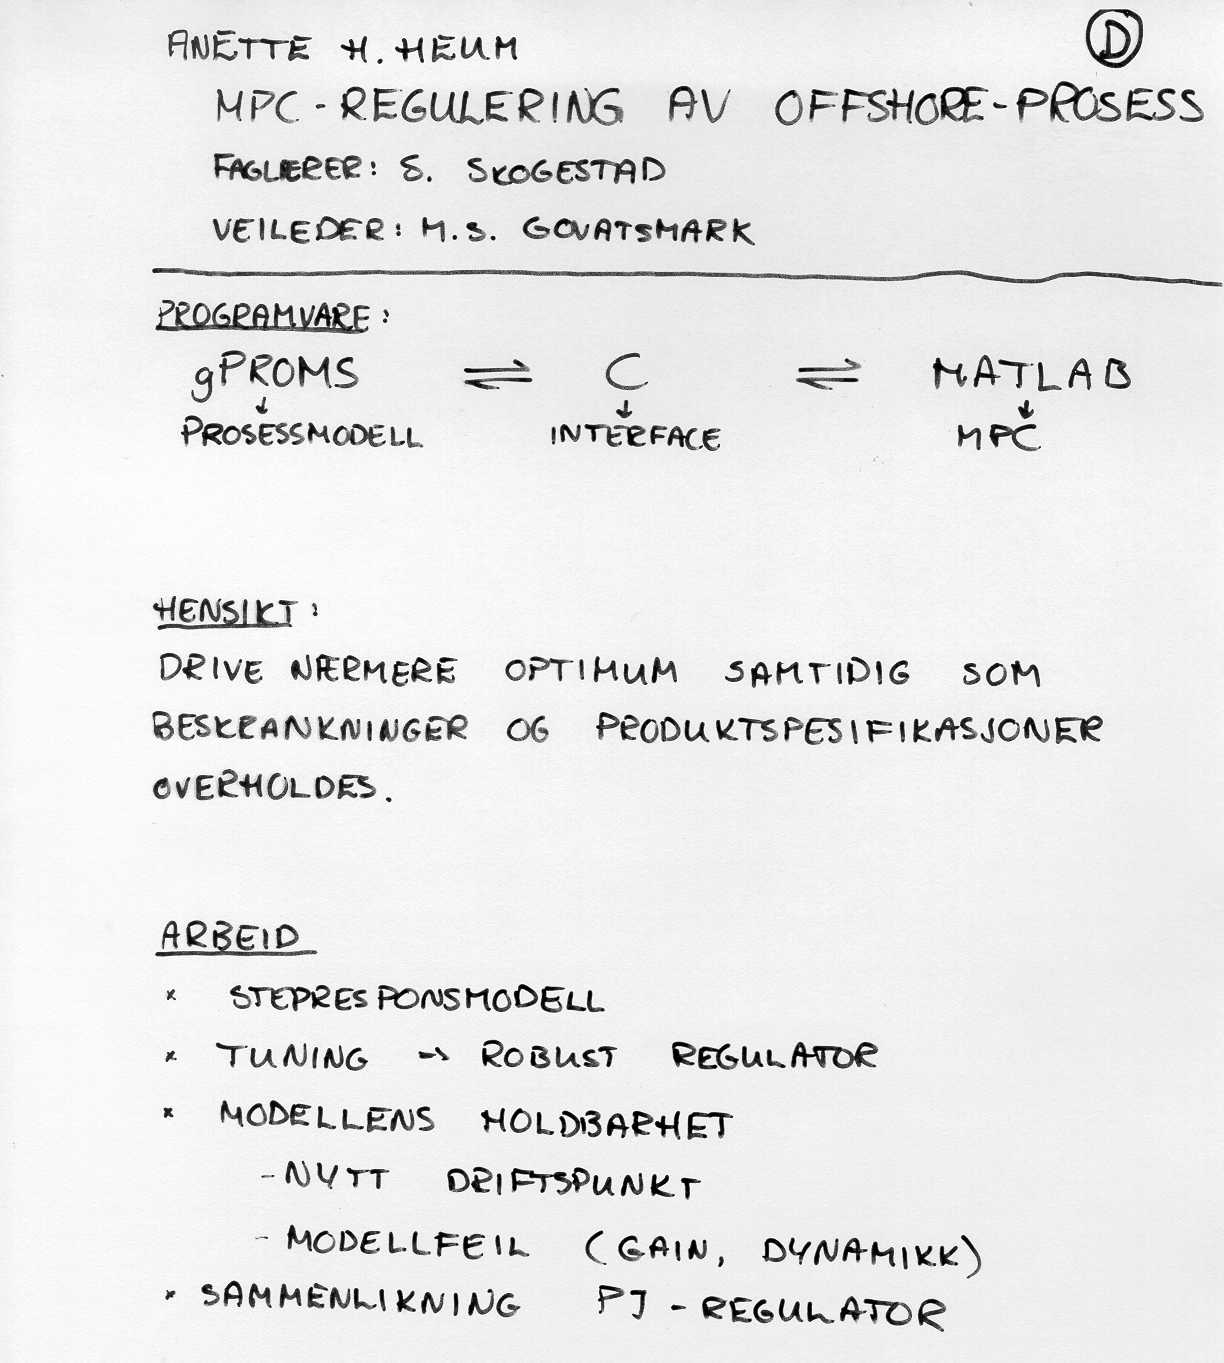 ANETTE H. HEUM
D
MPC-REGULERING AV OFFSHORE-PROSESS
FAGLÆRER: S. SKOGESTAD
VEILEDER: M.S. GOVATSMARK
PROGRAMVARE:
gPROMS ⇌ C ⇌ MATLAB
↓ ↓ ↓
PROSESSMODELL INTERFACE MPC
HENSIKT:
DRIVE NÆRMERE OPTIMUM SAMTIDIG SOM
BESKRANKNINGER OG PRODUKTSPESIFIKASJONER
OVERHOLDES.
ARBEID
* STEPRESPONSMODELL
* TUNING → ROBUST REGULATOR
* MODELLENS HOLDBARHET
- NYTT DRIFTSPUNKT
- MODELLFEIL (GAIN, DYNAMIKK)
* SAMMENLIKNING PI-REGULATOR